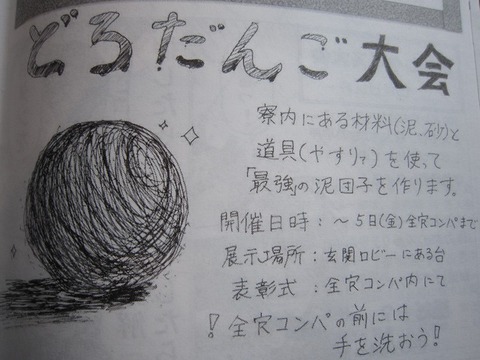 どろだんご大会
寮内にある材料(泥、砂)と
道具(やすりetc)を使って
「最強」の泥団子を作ります。
開催日時:〜5日(金)全穴コンパまで
展示場所:玄関ロビーにある台
表彰式:全穴コンパ内にて
!全穴コンパの前には
手を洗おう!